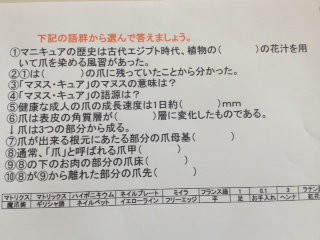 下記の語群から選んで答えましょう。
①マニキュアの歴史は古代エジプト時代、植物の(　　　)の花汁を用
いて爪を染める風習があった。
②①は(　　　)の爪に残っていたことから分かった。
③「マヌス・キュア」のマヌスの意味は？
④「マヌス・キュア」の語源は？
⑤健康な成人の爪の成長速度は1日約(　　　)mm
⑥爪は表皮の角質層が(　　　)層に変化したものである。
↓爪は3つの部分から成る。
⑦爪が出来る根元にあたる部分の爪母基(　　　)
⑧通常、「爪」と呼ばれる爪甲(　　　)
⑨⑧の下のお肉の部分の爪床(　　　)
⑩⑧が⑨から離れた部分の爪先(　　　)
マトリクス　マトリックス　ハイポニキウム　ネイルプレート　ミイラ　フランス語　1　0.1　3　ラテン
魔爪術　ギリシャ語　ネイルベット　イエローライン　フリーエッジ　手　足　お手入れ　ヘンナ